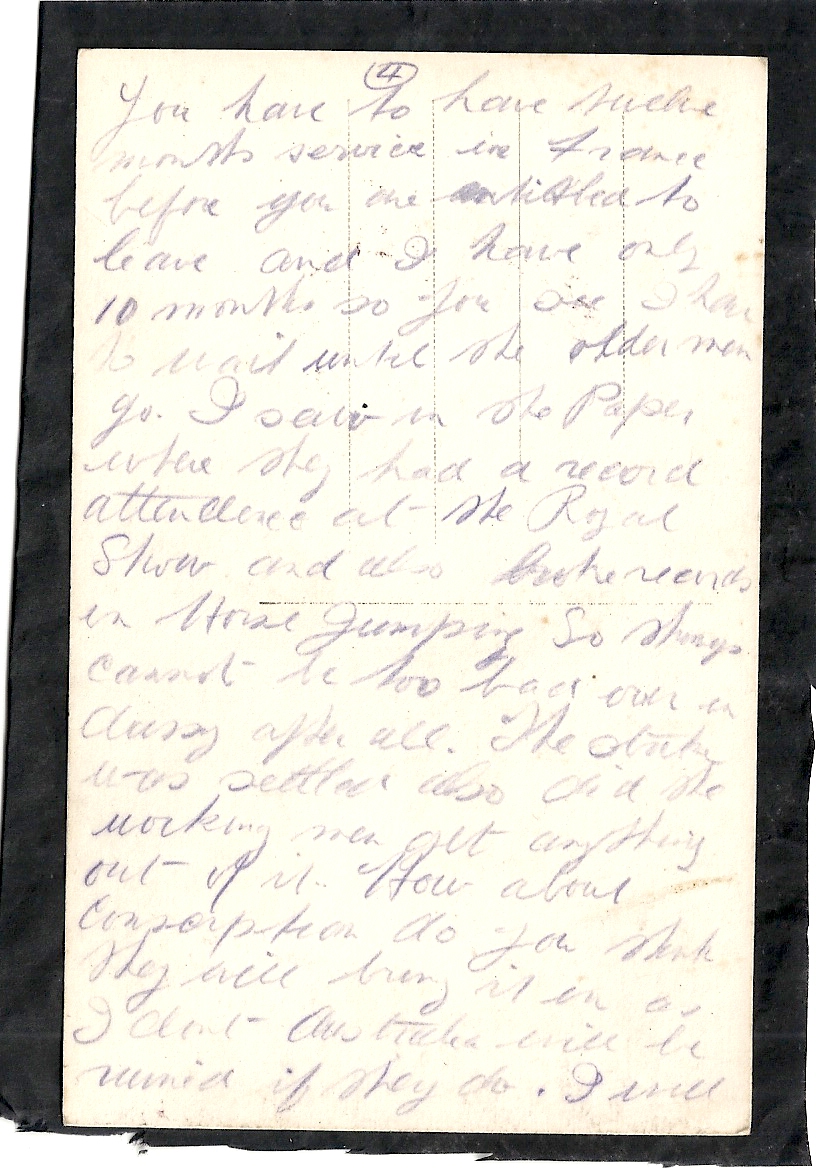 4
You have to have twelve
months service in France
before you are entittled to
leave and I have only
10 months so you see I have
to wait until the older men
go. I saw in the Paper
where they had a record
attendence at the Royal
Show and also broke records
in Horse Jumping So things
cannot be too bad over in
Aussy after all. The strike
was settled also did the
working men get anything
out of it. How about
Conscription do you think
they will bring it in as
I dont Australia will be
ruined if they do. I will